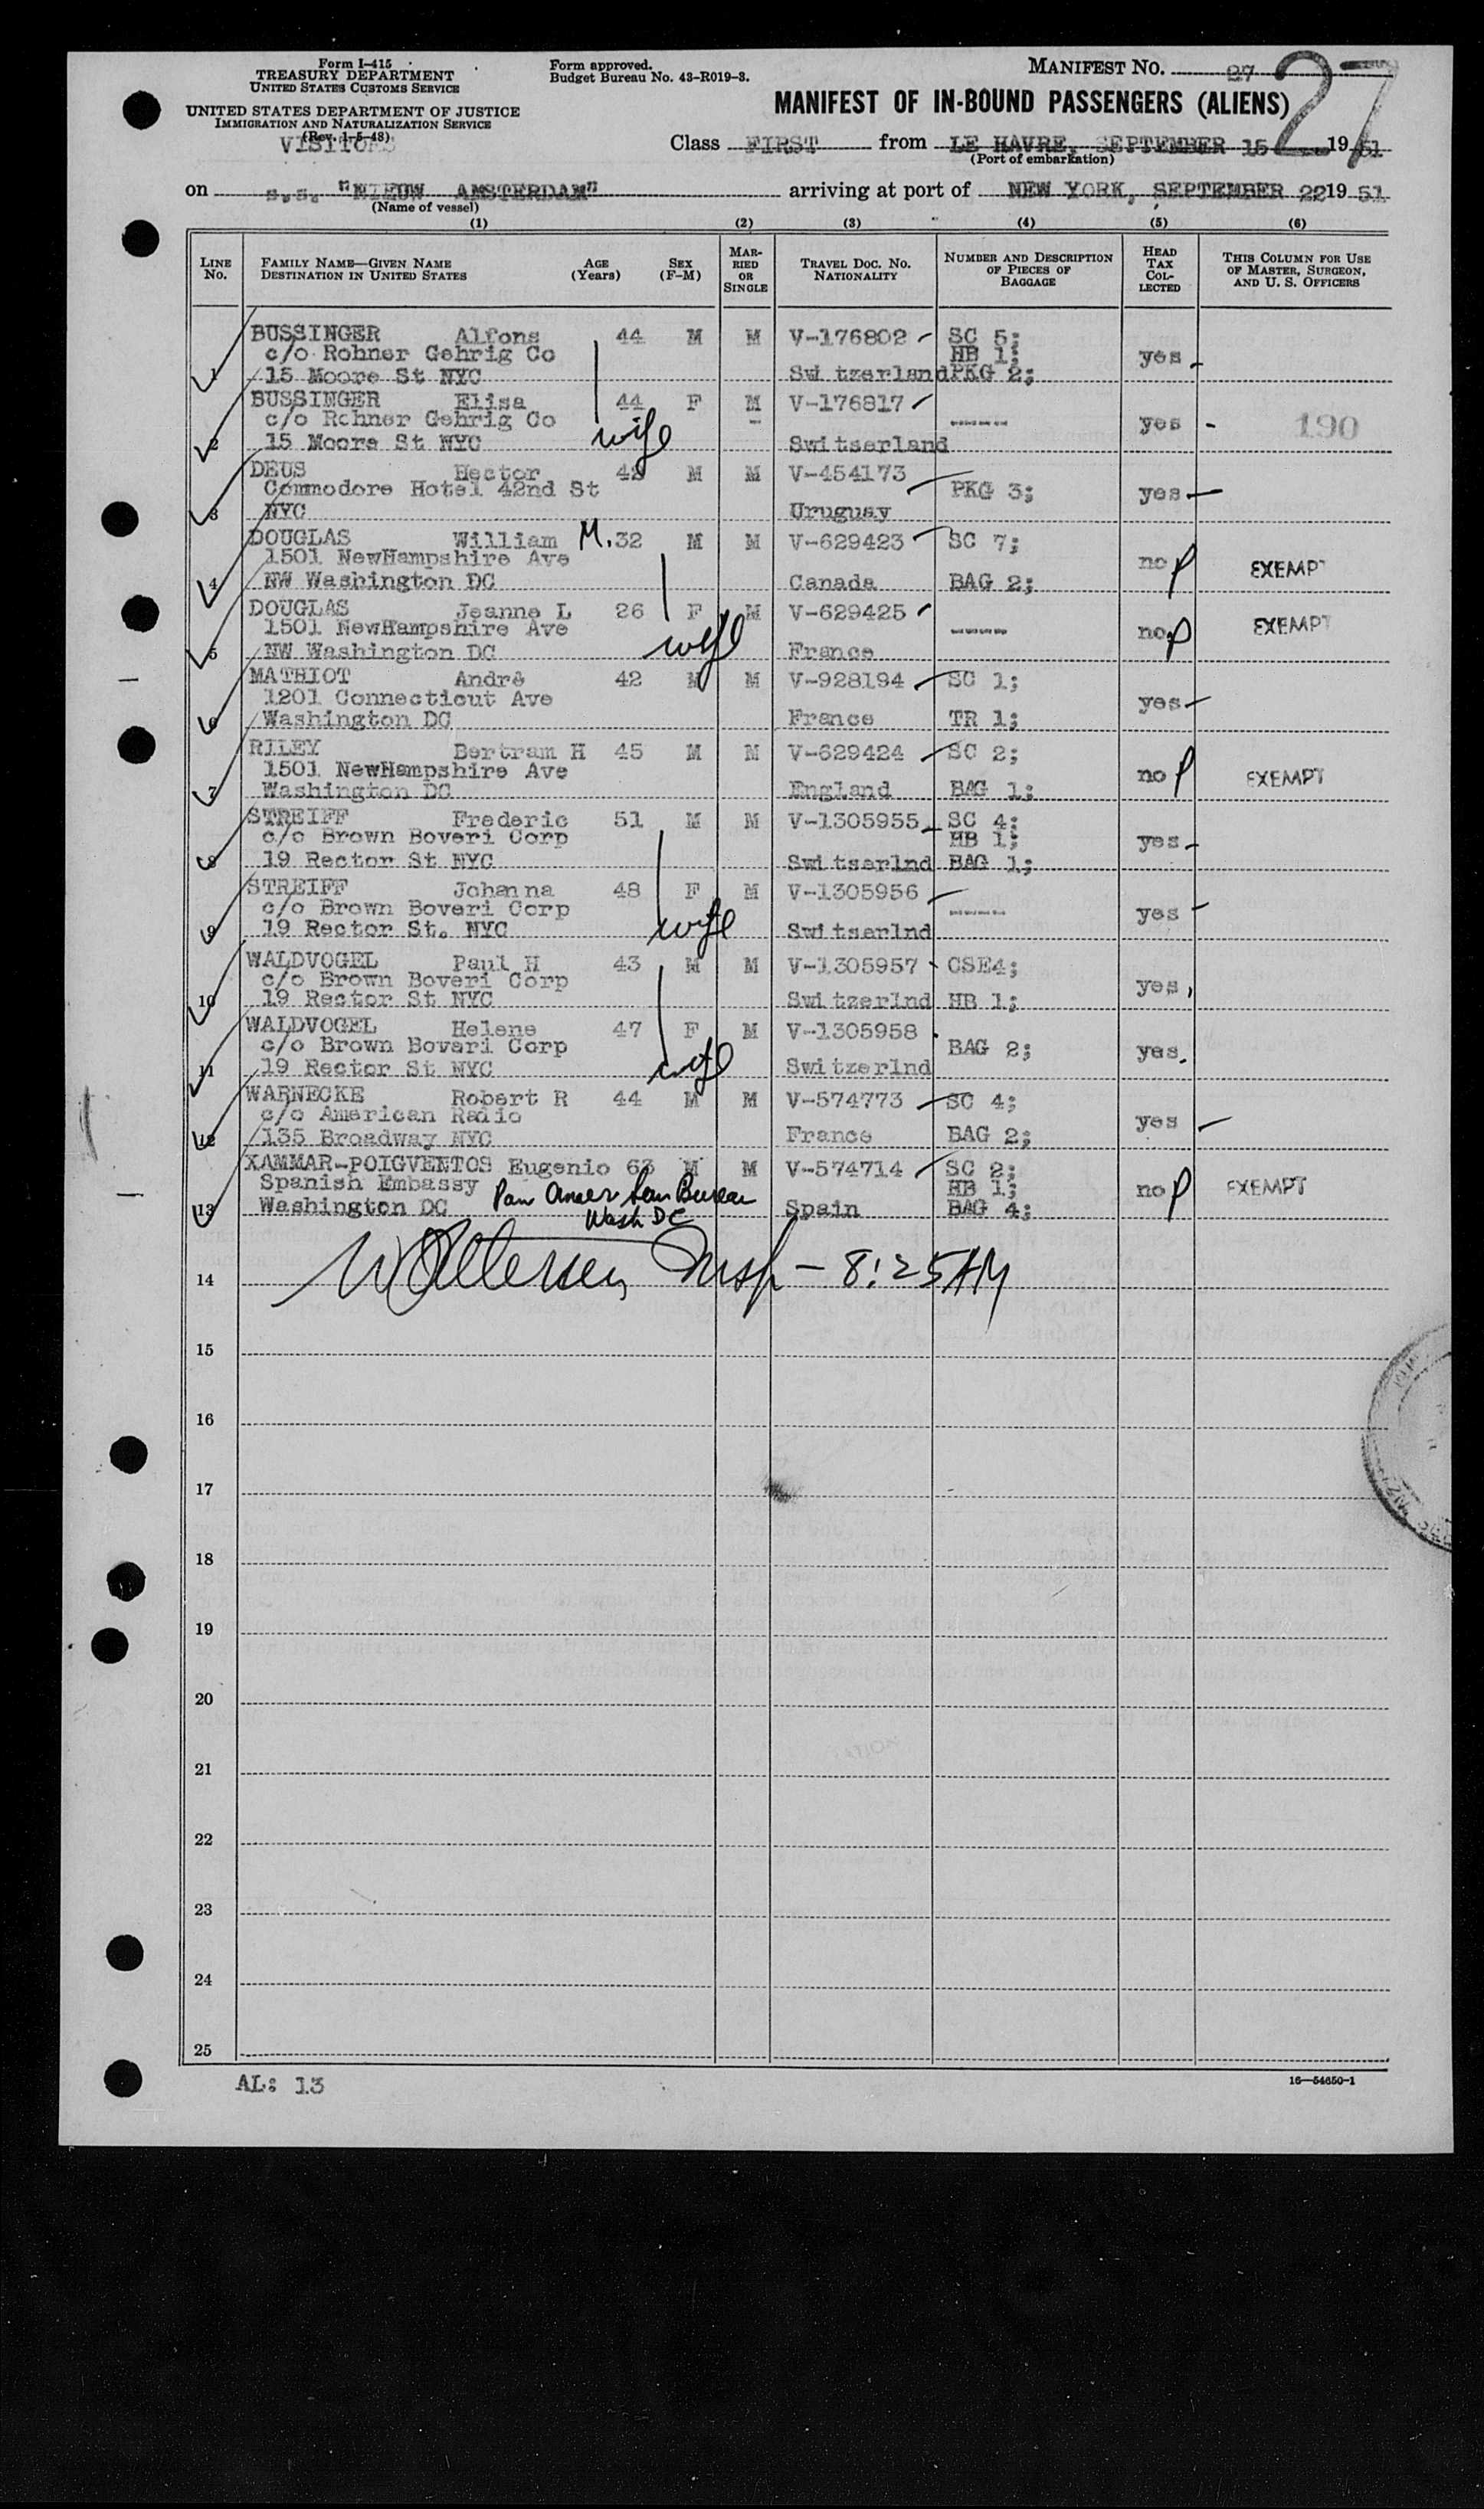 Form I-415
TREASURY DEPARTMENT
UNITED STATES CUSTOMS SERVICE
UNITED STATES DEPARTMENT OF JUSTICE
IMMIGRATION AND NATURALIZATION SERVICE
(Rev. 1-5-48)
VISITORS
Form approved.
Budget Bureau No. 43-R019-3.
MANIFEST NO. 27
27
MANIFEST OF IN-BOUND PASSENGERS (ALIENS)
Class FIRST from LE HAVRE, SEPTEMBER 15 1951
(Port of embarkation)
on s.s. "NIEUW AMSTERDAM" arriving at port of NEW YORK, SEPTEMBER 22 1951
(Name of vessel)
(1) (2) (3) (4) (5) (6)
LINE No. FAMILY NAME—GIVEN NAME DESTINATION IN UNITED STATES AGE (Years) SEX (F-M) MARRIED OR SINGLE TRAVEL DOC. NO. NATIONALITY NUMBER AND DESCRIPTION OF PIECES OF BAGGAGE HEAD TAX COLLECTED THIS COLUMN FOR USE OF MASTER, SURGEON, AND U. S. OFFICERS
BUSSINGER Alfons 44 M M V-176802 SC 5;
c/o Rohner Gehrig Co HB 1; yes
1 15 Moore St NYC Switzerland PKG 2;
BUSSINGER Elisa 44 F M V-176817
c/o Rohner Gehrig Co wife ----- yes - 190
2 15 Moore St NYC Switserland
DEUS Hector 42 M M V-454173
Commodore Hotel 42nd St PKG 3; yes
3 NYC Uruguay
DOUGLAS William M. 32 M M V-629423 SC 7;
1501 NewHampshire Ave no EXEMPT
4 NW Washington DC Canada BAG 2;
DOUGLAS Jeanne L 26 F M V-629425
1501 NewHampshire Ave wife ----- no EXEMPT
5 NW Washington DC France
MATHIOT André 42 M M V-928194 SC 1;
1201 Connecticut Ave yes
6 Washington DC France TR 1;
RILEY Bertram H 45 M M V-629424 SC 2;
1501 NewHampshire Ave no EXEMPT
7 Washington DC England BAG 1;
STREIFF Frederic 51 M M V-1305955 SC 4;
c/o Brown Boveri Corp HB 1; yes
8 19 Rector St NYC Switserlnd BAG 1;
STREIFF Johanna 48 F M V-1305956
c/o Brown Boveri Corp wife ----- yes
9 19 Rector St. NYC Switserlnd
WALDVOGEL Paul H 43 M M V-1305957 CSE4;
c/o Brown Boveri Corp yes
10 19 Rector St NYC Switzerlnd HB 1;
WALDVOGEL Helene 47 F M V-1305958
c/o Brown Boveri Corp wife BAG 2; yes
11 19 Rector St NYC Switzerlnd
WARNECKE Robert R 44 M M V-574773 SC 4;
c/o American Radio yes
12 135 Broadway NYC France BAG 2;
XAMMAR-POIGVENTOS Eugenio 63 M M V-574714 SC 2;
Spanish Embassy Pan Amer San Bureau HB 1; no EXEMPT
13 Washington DC Wash DC Spain BAG 4;
14 Insp - 8:25 AM
15
16
17
18
19
20
21
22
23
24
25
AL: 13
16—54650-1